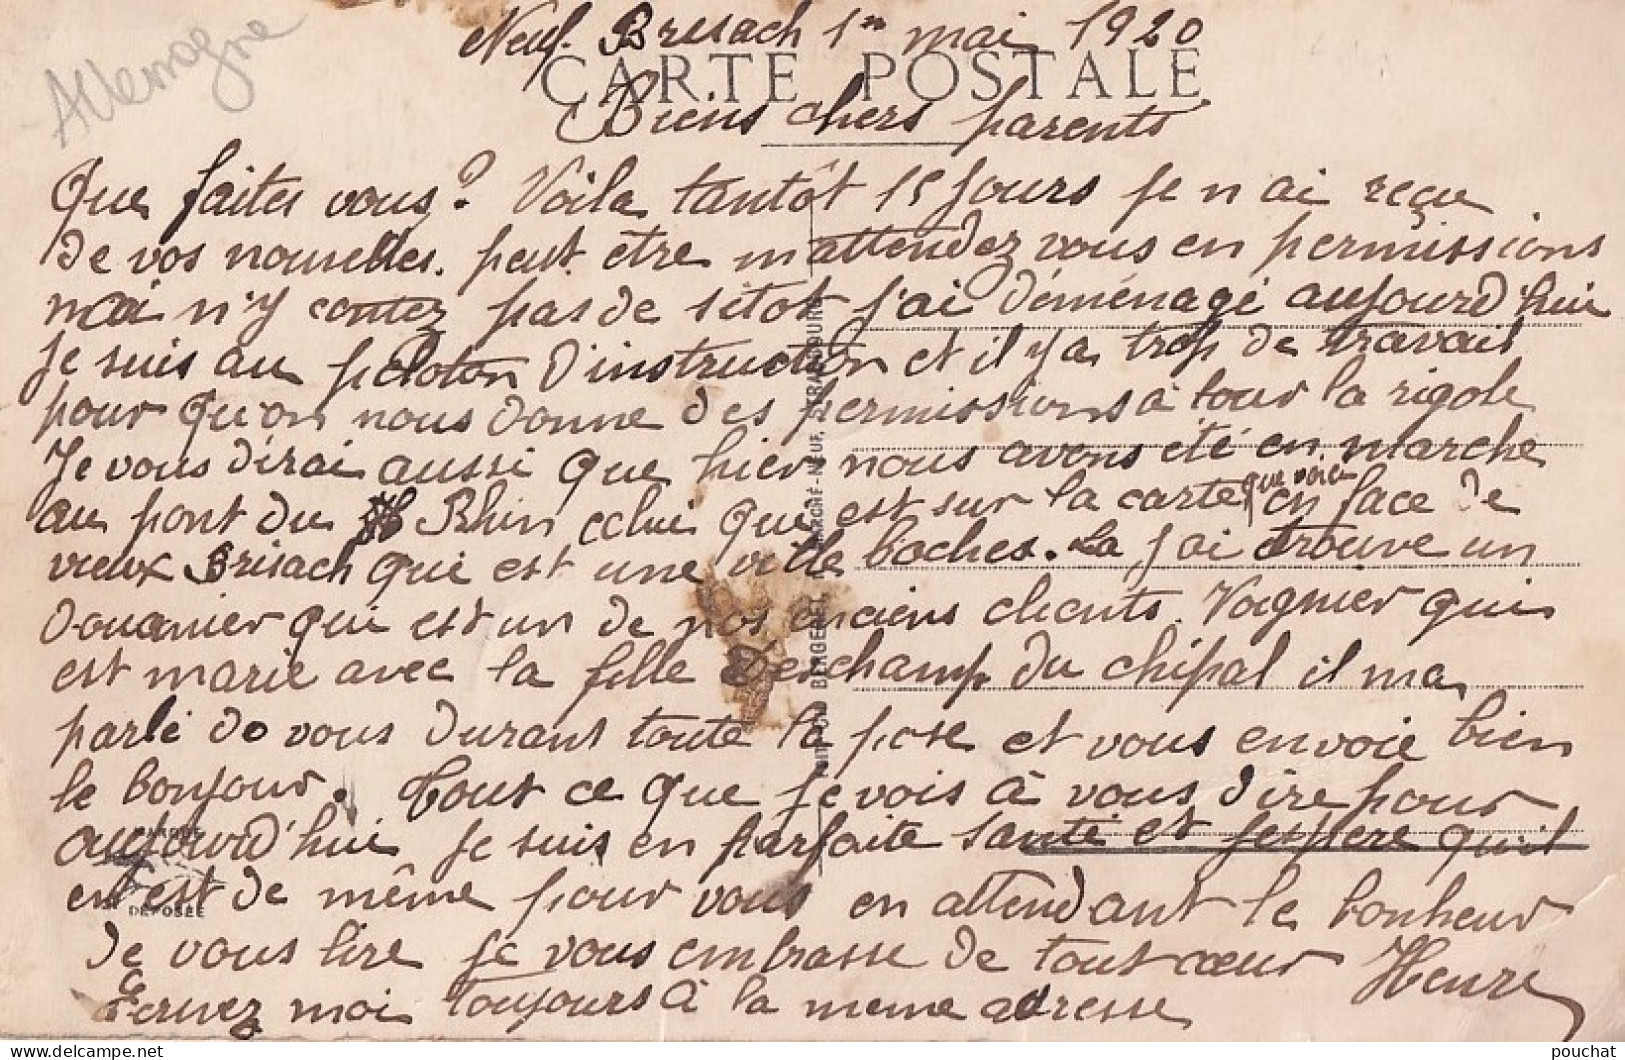 Allemagne
Neuf. Brisach 1er mai 1920
CARTE POSTALE
Biens chers parents
Que faites vous? Voila tantôt 15 jours je n ai reçue
de vos nouvelles. peut. etre m attendez vous en permissions
mai n'y contez pas de sitot j'ai déménagé aujourd'hui
je suis au peloton d'instruction et il y a trop de travail
pour qu'on nous donne des permissions à tour la rigole
Je vous dirai aussi que hier nous avons été en marche
au pont du Rhin celui qui est sur la carte que voici en face de
vieux Brisach qui est une ville boches. La j ai trouve un
douanier qui est un de nos anciens clients. Vagnier qui
est marie avec la fille Deschamp. du chipal il ma
parlé de vous durant toute la pose et vous envoie bien
le bonjour. Tout ce que je vois à vous dire pour
aujourd'hui je suis en parfaite santé et jespere qu'il
en est de même pour vous en attendant le bonheur
de vous lire je vous embrasse de tout cœur Henri
Ecrivez moi toujours à la meme adresse
MARQUE
DEPOSÉE
pouchat